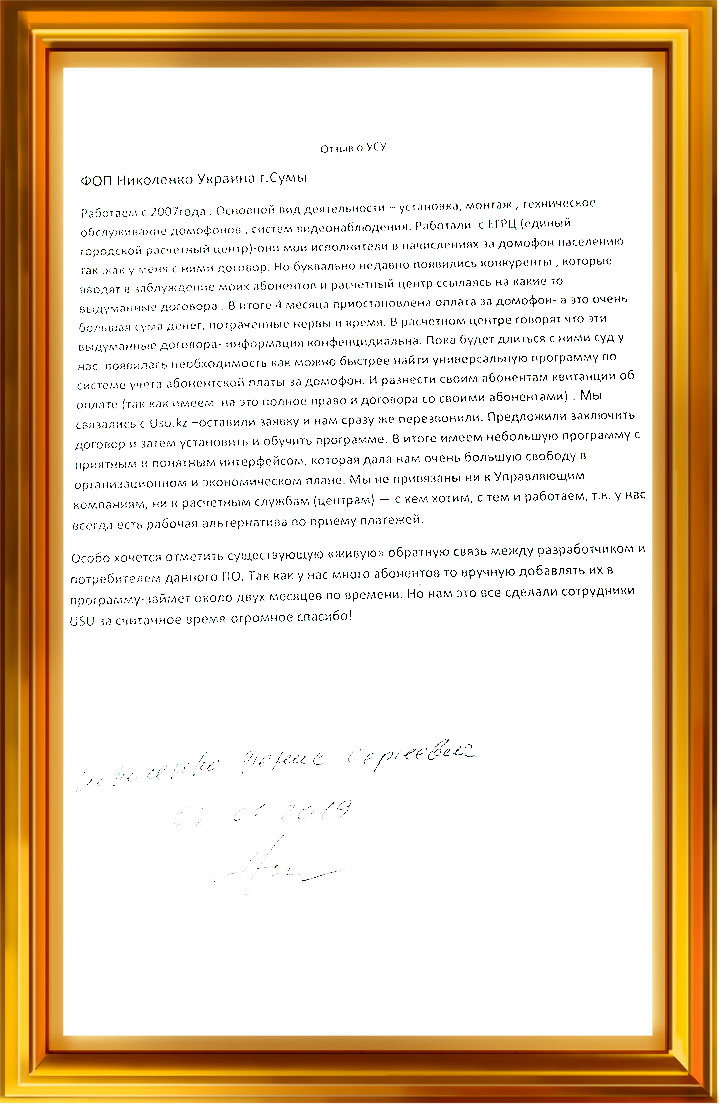 Отзыв о УСУ
ФОП Николенко Украина г.Сумы
Работаем с 2007года . Основной вид деятельности – установка, монтаж , техническое
обслуживание домофонов , систем видеонаблюдения. Работали с ЕГРЦ (единый
городской расчетный центр)-они мои исполнители в начислениях за домофон населению
так .как у меня с ними договор. Но буквально недавно появились конкуренты , которые
вводят в заблуждение моих абонентов и расчетный центр ссылаясь на какие то
выдуманные договора . В итоге 4 месяца приостановлена оплата за домофон- а это очень
большая сума денег, потраченные нервы и время. В расчетном центре говорят что эти
выдуманные договора- информация конфенцидиальна. Пока будет длиться с ними суд у
нас появилась необходимость как можно быстрее найти универсальную программу по
системе учета абонентской платы за домофон. И разнести своим абонентам квитанции об
оплате (так как имеем на это полное право и договора со своими абонентами) . Мы
связались с Usu.kz –оставили заявку и нам сразу же перезвонили. Предложили заключить
договор и затем установить и обучить программе. В итоге имеем небольшую программу с
приятным и понятным интерфейсом, которая дала нам очень большую свободу в
организационном и экономическом плане. Мы не привязаны ни к Управляющим
компаниям, ни к расчетным службам (центрам) — с кем хотим, с тем и работаем, т.к. у нас
всегда есть рабочая альтернатива по приему платежей.
Особо хочется отметить существующую «живую» обратную связь между разработчиком и
потребителем данного ПО. Так как у нас много абонентов то вручную добавлять их в
программу-займет около двух месяцев по времени. Но нам это все сделали сотрудники
USU за считанное время-огромное спасибо!
Николенко Денис Сергеевич
2019